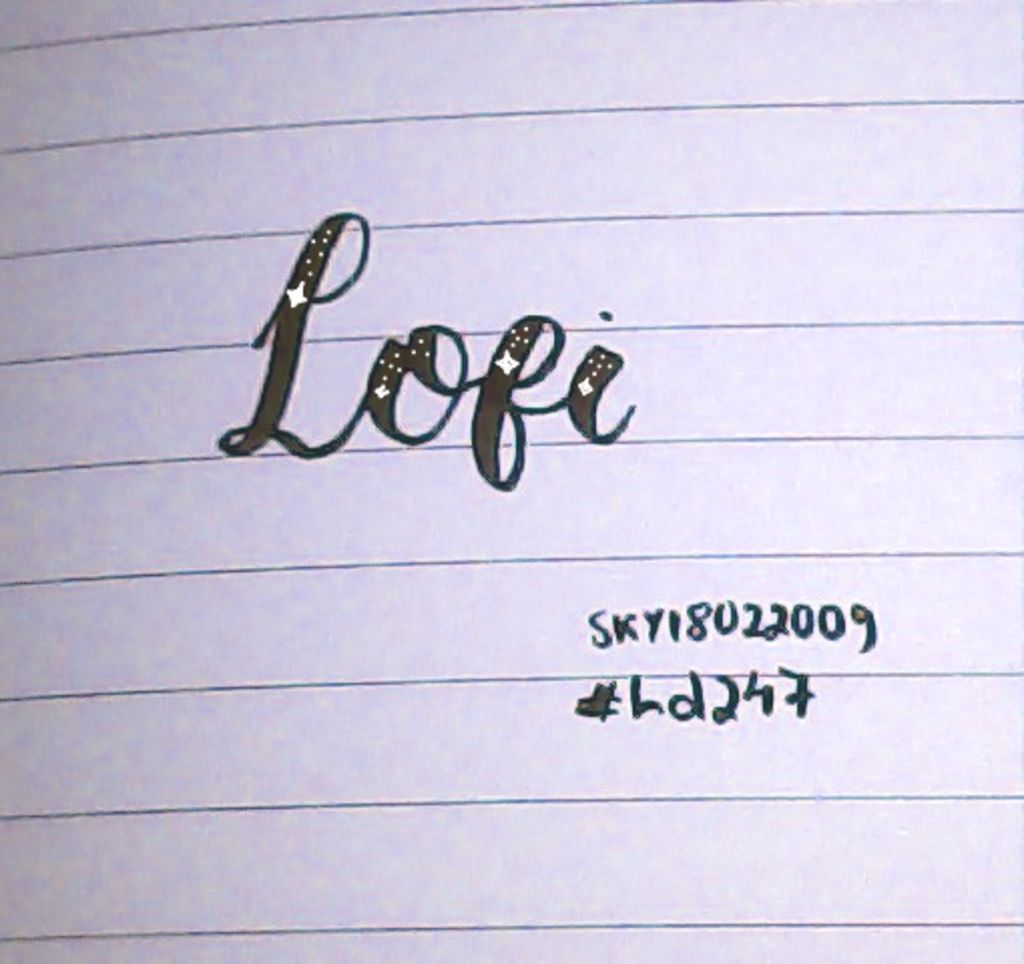 Lofi
SKY18022009
#hd247